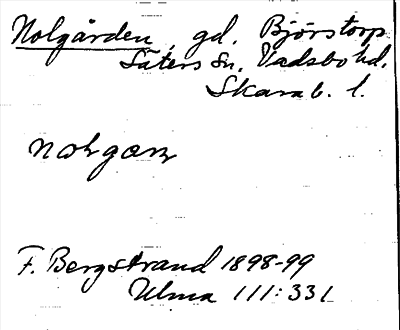 Nolgården, gd. Björstorp
Säters sn. Vadsbo hd.
Skarab. l.
F. Bergstrand 1898-99
Ulma 111:331